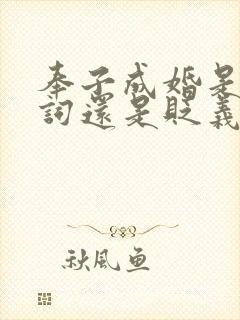 奉子成婚是
詞還是貶義
秋風鱼